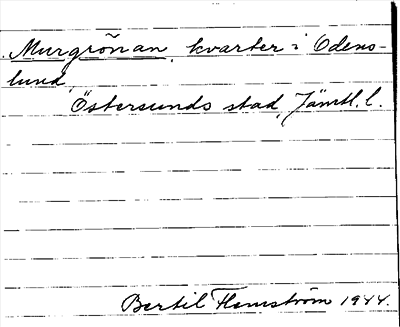 Murgrönan, kvarter i Odens-
lund,
Östersunds stad, Jämtl. l.
Bertil Flemström 1944.